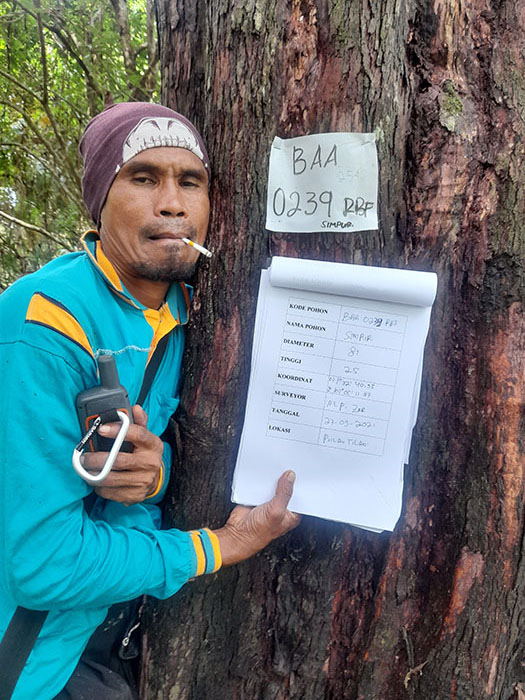 BAA
0239 RBF
SIMPUR
KODE POHON BAA 0239 RBF
NAMA POHON SIMPUR
DIAMETER 87
TINGGI 25
KOORDINAT
SURVEYOR
TANGGAL 27-09-2021
LOKASI PULAU TILAU